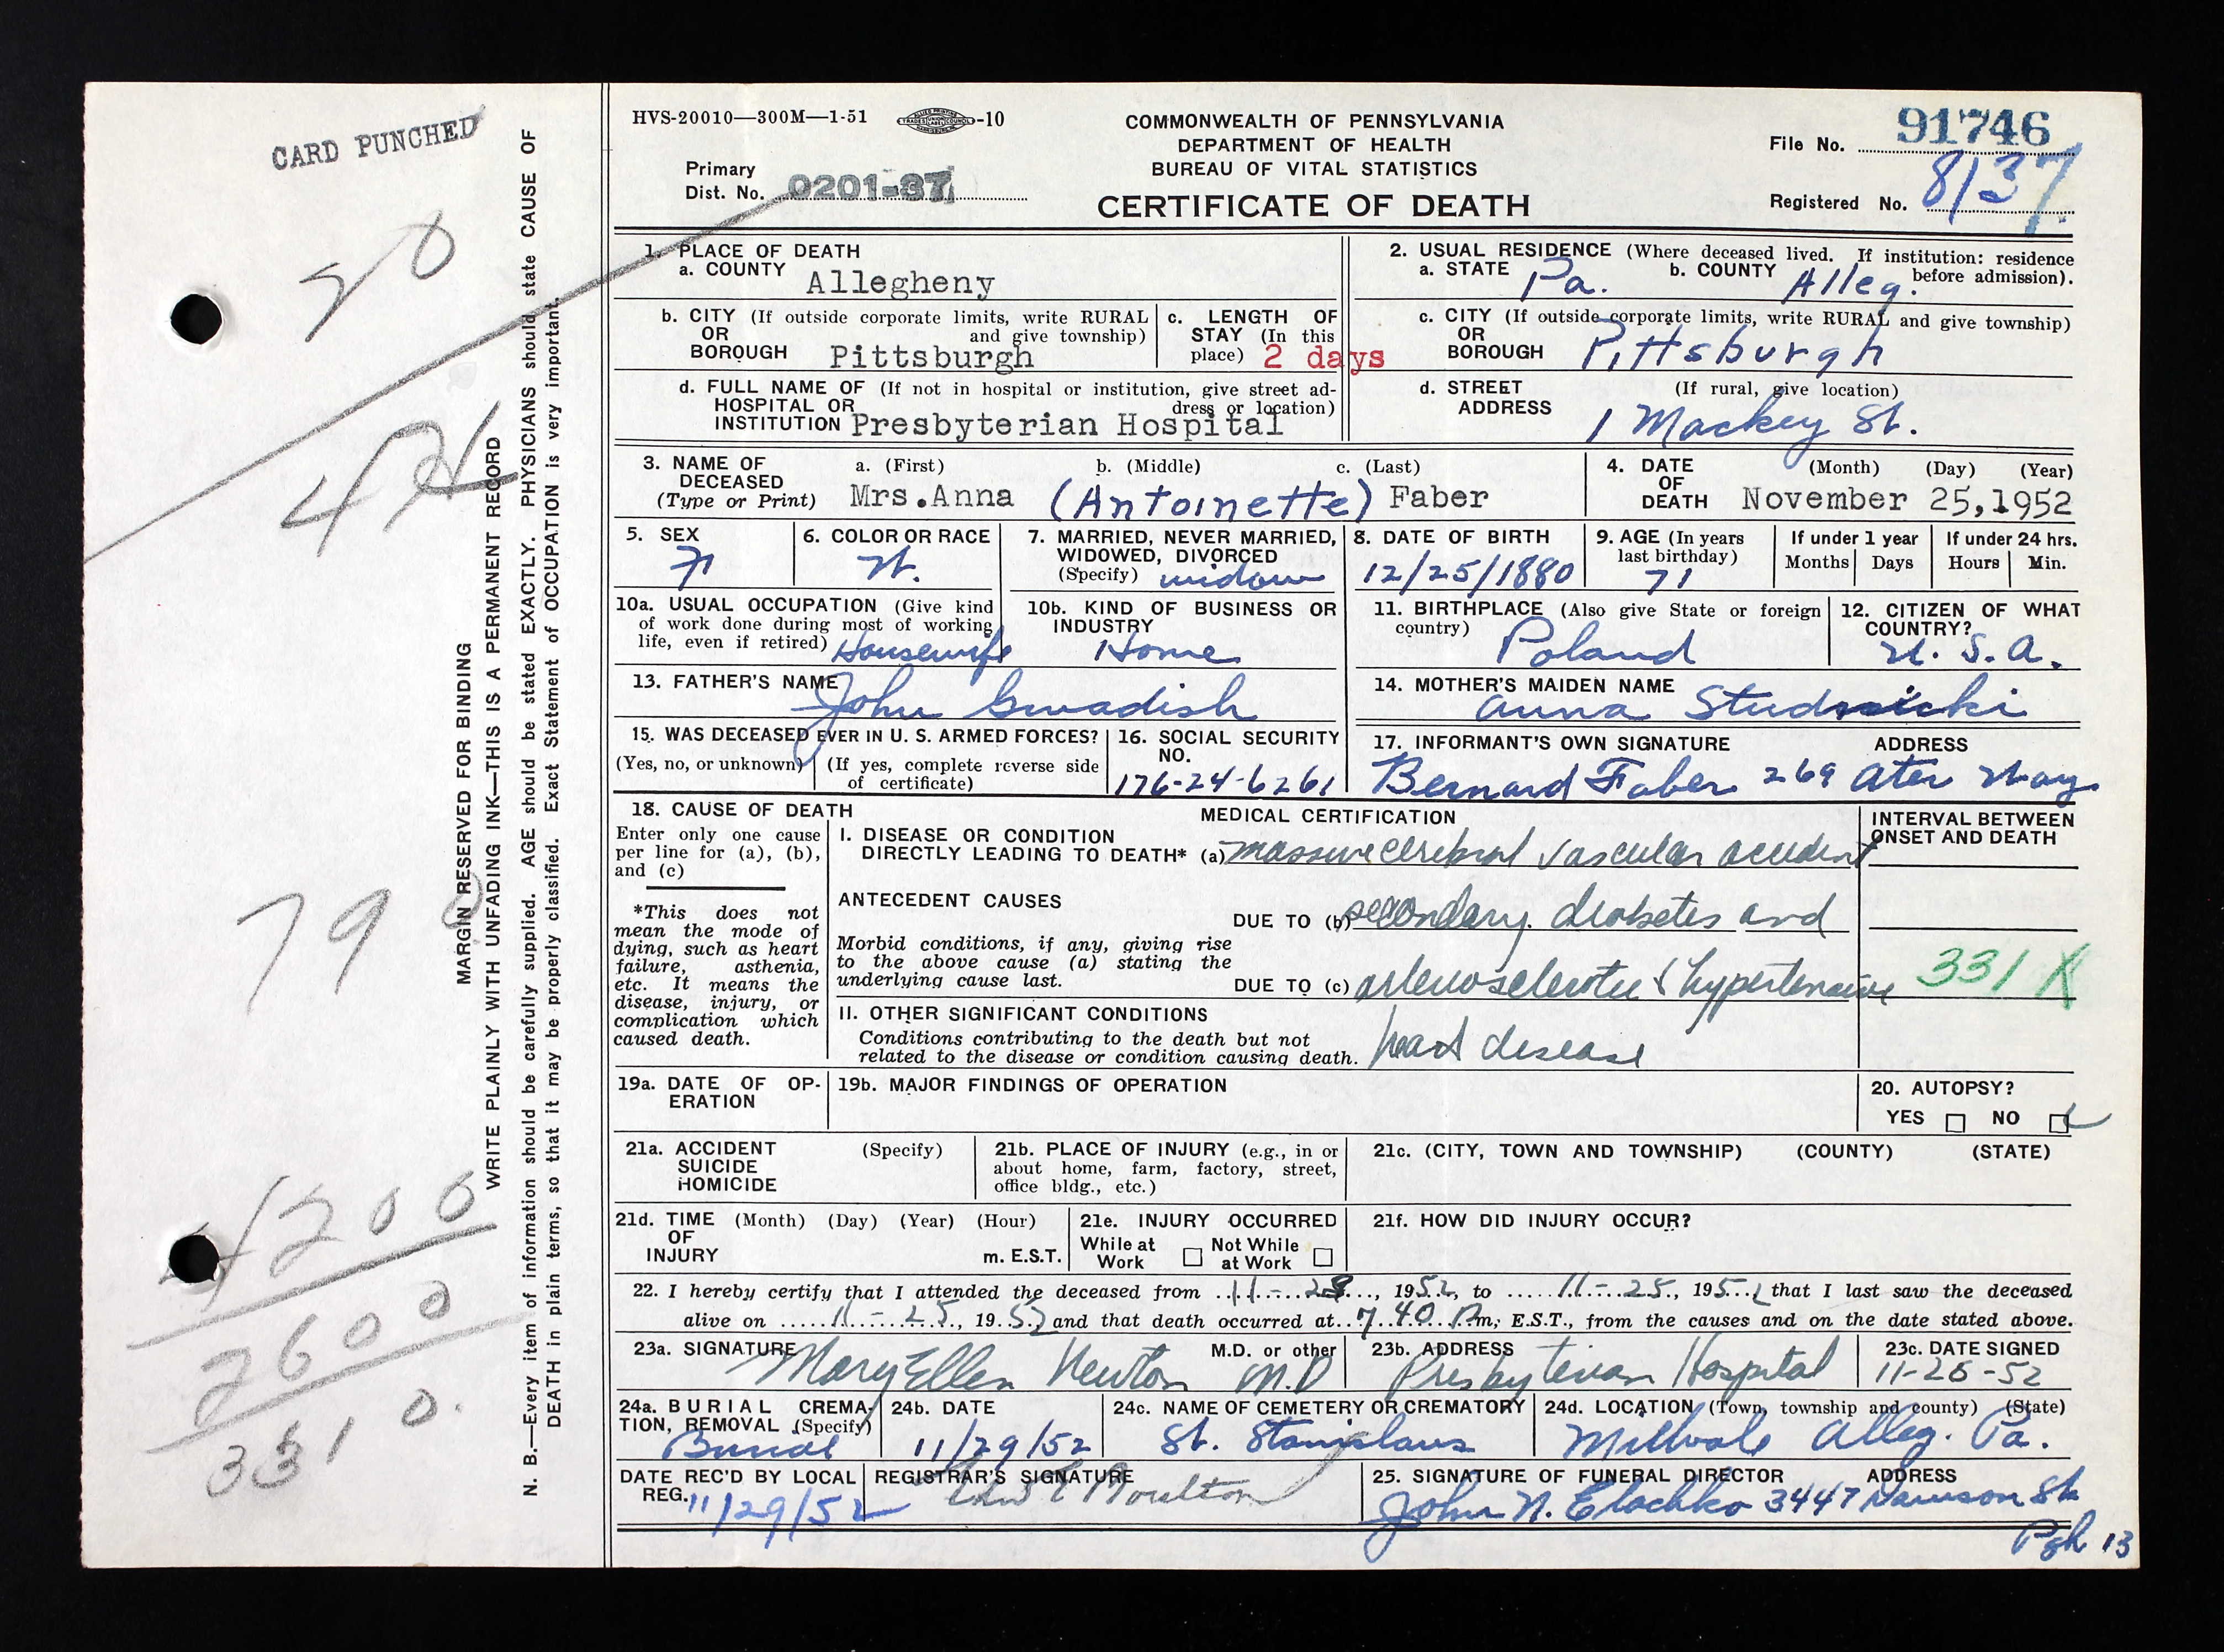 CARD PUNCHED
20
79
1200
2600
3310.
MARGIN RESERVED FOR BINDING
WRITE PLAINLY WITH UNFADING INK—THIS IS A PERMANENT RECORD
N. B.—Every item of information should be carefully supplied. AGE should be stated EXACTLY. PHYSICIANS should state CAUSE OF
DEATH in plain terms, so that it may be properly classified. Exact Statement of OCCUPATION is very important.
HVS-20010—300M—1-51 -10
COMMONWEALTH OF PENNSYLVANIA
DEPARTMENT OF HEALTH
BUREAU OF VITAL STATISTICS
CERTIFICATE OF DEATH
Primary
Dist. No. 0201-37
File No. 91746
Registered No. 8137
1. PLACE OF DEATH
a. COUNTY Allegheny
b. CITY (If outside corporate limits, write RURAL
OR and give township)
BOROUGH Pittsburgh
c. LENGTH OF
STAY (In this
place) 2 days
d. FULL NAME OF (If not in hospital or institution, give street ad-
HOSPITAL OR dress or location)
INSTITUTION Presbyterian Hospital
2. USUAL RESIDENCE (Where deceased lived. If institution: residence
a. STATE Pa. b. COUNTY Alleg. before admission).
c. CITY (If outside corporate limits, write RURAL and give township)
OR
BOROUGH Pittsburgh
d. STREET (If rural, give location)
ADDRESS 1 Mackey St.
3. NAME OF a. (First) b. (Middle) c. (Last)
DECEASED
(Type or Print) Mrs.Anna (Antoinette) Faber
4. DATE (Month) (Day) (Year)
OF
DEATH November 25,1952
5. SEX
F
6. COLOR OR RACE
W.
7. MARRIED, NEVER MARRIED,
WIDOWED, DIVORCED
(Specify) widow
8. DATE OF BIRTH
12/25/1880
9. AGE (In years
last birthday)
71
If under 1 year
Months Days
If under 24 hrs.
Hours Min.
10a. USUAL OCCUPATION (Give kind
of work done during most of working
life, even if retired) Housewife
10b. KIND OF BUSINESS OR
INDUSTRY
Home
11. BIRTHPLACE (Also give State or foreign
country)
Poland
12. CITIZEN OF WHAT
COUNTRY?
U. S. A.
13. FATHER'S NAME
John Gwadish
14. MOTHER'S MAIDEN NAME
Anna Studnicki
15. WAS DECEASED EVER IN U. S. ARMED FORCES?
(Yes, no, or unknown) (If yes, complete reverse side
of certificate)
16. SOCIAL SECURITY
NO.
176-24-6261
17. INFORMANT'S OWN SIGNATURE ADDRESS
Bernard Faber 269 Ater Way
18. CAUSE OF DEATH
Enter only one cause
per line for (a), (b),
and (c)
*This does not
mean the mode of
dying, such as heart
failure, asthenia,
etc. It means the
disease, injury, or
complication which
caused death.
MEDICAL CERTIFICATION
I. DISEASE OR CONDITION
DIRECTLY LEADING TO DEATH* (a) massive cerebral vascular accident
ANTECEDENT CAUSES
DUE TO (b) secondary diabetes and
Morbid conditions, if any, giving rise
to the above cause (a) stating the
underlying cause last.
DUE TO (c) arteriosclerotic & hypertensive
II. OTHER SIGNIFICANT CONDITIONS
Conditions contributing to the death but not
related to the disease or condition causing death. heart disease
INTERVAL BETWEEN
ONSET AND DEATH
331 X
19a. DATE OF OP-
ERATION
19b. MAJOR FINDINGS OF OPERATION
20. AUTOPSY?
YES NO
21a. ACCIDENT (Specify)
SUICIDE
HOMICIDE
21b. PLACE OF INJURY (e.g., in or
about home, farm, factory, street,
office bldg., etc.)
21c. (CITY, TOWN AND TOWNSHIP) (COUNTY) (STATE)
21d. TIME (Month) (Day) (Year) (Hour)
OF
INJURY m. E.S.T.
21e. INJURY OCCURRED
While at Not While
Work at Work
21f. HOW DID INJURY OCCUR?
22. I hereby certify that I attended the deceased from 11-23, 1952, to 11-25, 1952 that I last saw the deceased
alive on 11-25, 1952 and that death occurred at 7 40 P m; E.S.T., from the causes and on the date stated above.
23a. SIGNATURE M.D. or other
Mary Ellen Newton M.D
23b. ADDRESS
Presbyterian Hospital
23c. DATE SIGNED
11-26-52
24a. BURIAL CREMA-
TION, REMOVAL (Specify)
Burial
24b. DATE
11/29/52
24c. NAME OF CEMETERY OR CREMATORY
St. Stanislaus
24d. LOCATION (Town, township and county) (State)
Millvale Alleg. Pa.
DATE REC'D BY LOCAL
REG. 11/29/52
REGISTRAR'S SIGNATURE
Moulton
25. SIGNATURE OF FUNERAL DIRECTOR ADDRESS
John N. Elachko 3447 Dawson St
Pgh 13